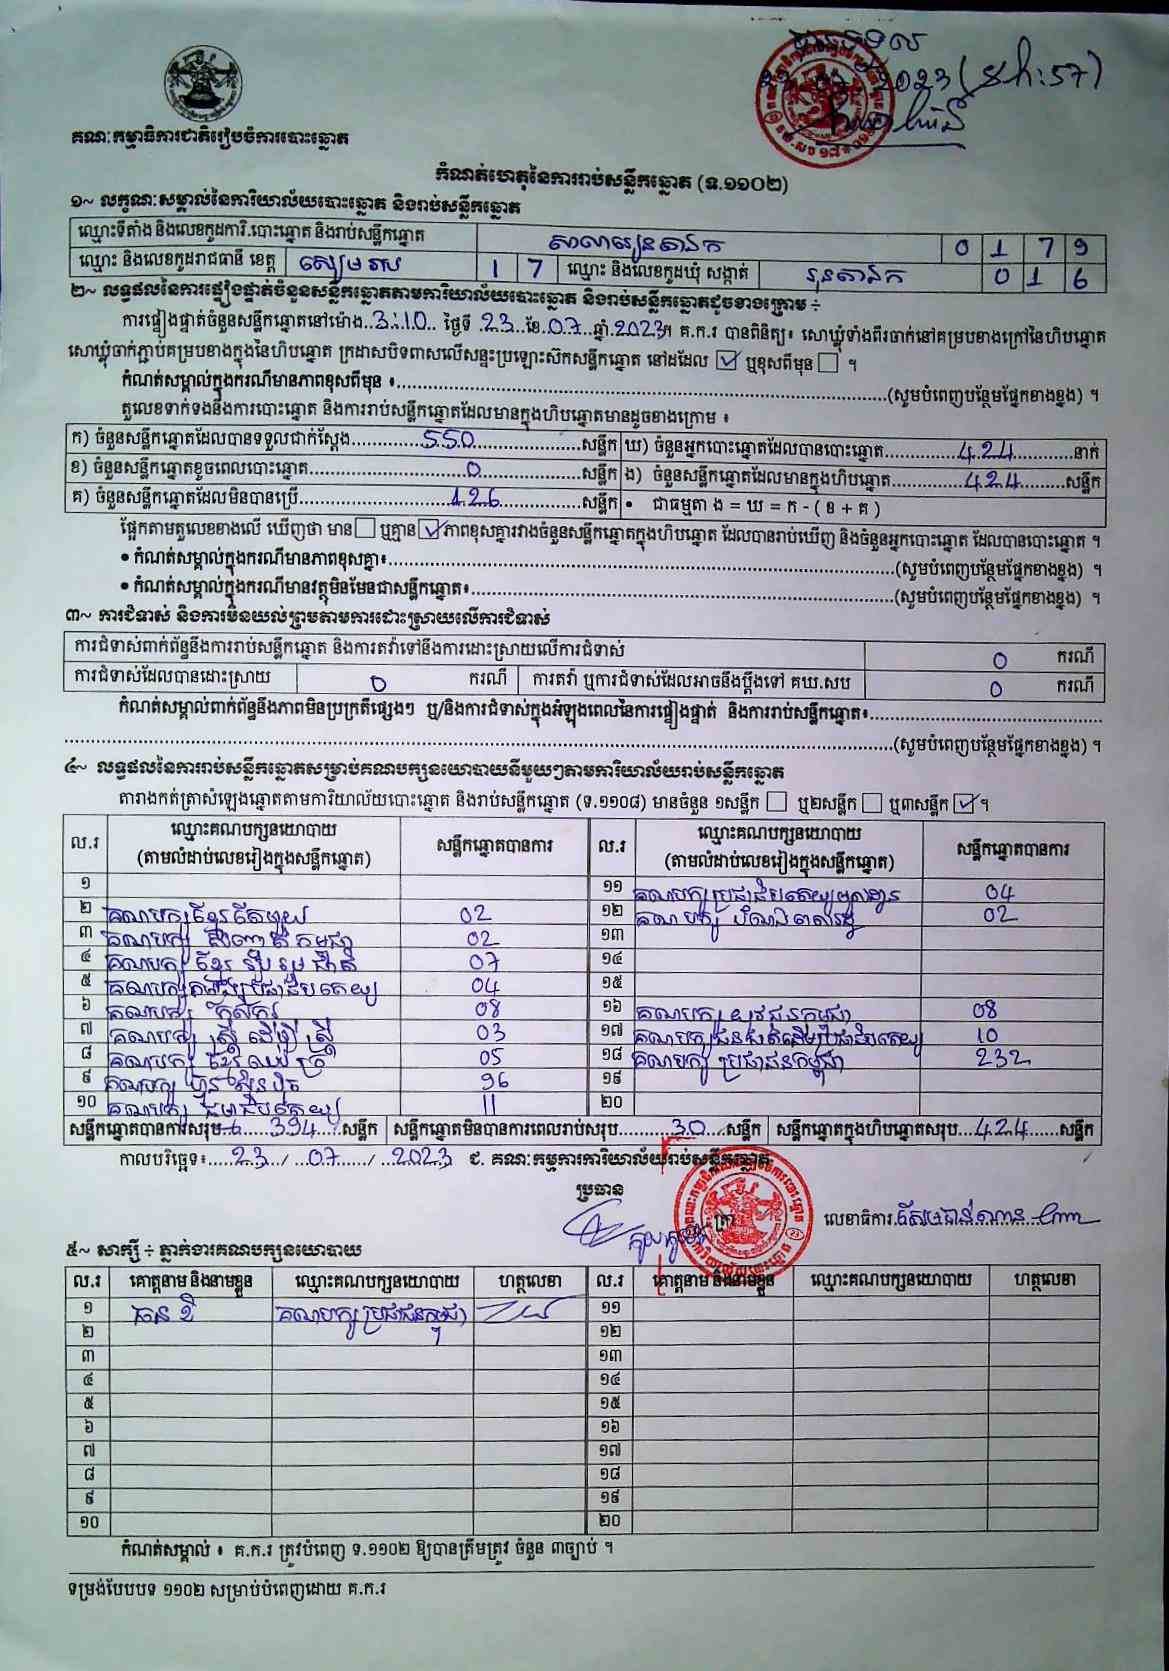 បានទទួល
23/07/2023 (ម៉:57)
គណៈកម្មាធិការជាតិរៀបចំការបោះឆ្នោត
កំណត់ហេតុនៃការរាប់សន្លឹកឆ្នោត (ទ.១១០២)
១~ លក្ខណៈសម្គាល់នៃការិយាល័យបោះឆ្នោត និងរាប់សន្លឹកឆ្នោត
ឈ្មោះទីតាំង និងលេខកូដការិ.បោះឆ្នោត និងរាប់សន្លឹកឆ្នោត សាលារៀនតាឯក 0 1 7 9
ឈ្មោះ និងលេខកូដរាជធានី ខេត្ត សៀមរាប 1 7 ឈ្មោះ និងលេខកូដឃុំ សង្កាត់ រុនតាឯក 0 1 6
២~ លទ្ធផលនៃការផ្ទៀងផ្ទាត់ចំនួនសន្លឹកឆ្នោតតាមការិយាល័យបោះឆ្នោត និងរាប់សន្លឹកឆ្នោតដូចខាងក្រោម ÷
ការផ្ទៀងផ្ទាត់ចំនួនសន្លឹកឆ្នោតនៅម៉ោង..3:10.. ថ្ងៃទី 23 ខែ.07..ឆ្នាំ.2023។ គ.ក.រ បានពិនិត្យ៖ សោឃ្លុំទាំងពីរចាក់នៅគម្របខាងក្រៅនៃហិបឆ្នោត
សោឃ្លុំចាក់ភ្ជាប់គម្របខាងក្នុងនៃហិបឆ្នោត ក្រដាសបិទពាសលើសន្ទះប្រឡោះស៊កសន្លឹកឆ្នោត នៅដដែល ☑ ឬខុសពីមុន ☐ ។
កំណត់សម្គាល់ក្នុងករណីមានភាពខុសពីមុន ៖.....(សូមបំពេញបន្ថែមផ្នែកខាងខ្នង) ។
តួលេខទាក់ទងនឹងការបោះឆ្នោត និងការរាប់សន្លឹកឆ្នោតដែលមានក្នុងហិបឆ្នោតមានដូចខាងក្រោម ៖
ក) ចំនួនសន្លឹកឆ្នោតដែលបានទទួលជាក់ស្តែង.....550.....សន្លឹក ឃ) ចំនួនអ្នកបោះឆ្នោតដែលបានបោះឆ្នោត.....424.....នាក់
ខ) ចំនួនសន្លឹកឆ្នោតខូចពេលបោះឆ្នោត.....0.....សន្លឹក ង) ចំនួនសន្លឹកឆ្នោតដែលមានក្នុងហិបឆ្នោត.....424.....សន្លឹក
គ) ចំនួនសន្លឹកឆ្នោតដែលមិនបានប្រើ.....126.....សន្លឹក • ជាធម្មតា ង = ឃ = ក - ( ខ + គ )
ផ្អែកតាមតួលេខខាងលើ ឃើញថា មាន ☐ ឬគ្មាន ☑ ភាពខុសគ្នារវាងចំនួនសន្លឹកឆ្នោតក្នុងហិបឆ្នោត ដែលបានរាប់ឃើញ និងចំនួនអ្នកបោះឆ្នោត ដែលបានបោះឆ្នោត ។
• កំណត់សម្គាល់ក្នុងករណីមានភាពខុសគ្នា៖.....(សូមបំពេញបន្ថែមផ្នែកខាងខ្នង) ។
• កំណត់សម្គាល់ក្នុងករណីមានវត្ថុមិនមែនជាសន្លឹកឆ្នោត៖.....(សូមបំពេញបន្ថែមផ្នែកខាងខ្នង) ។
៣~ ការជំទាស់ និងការមិនយល់ព្រមតាមការដោះស្រាយលើការជំទាស់
ការជំទាស់ពាក់ព័ន្ធនឹងការរាប់សន្លឹកឆ្នោត និងការតវ៉ាទៅនឹងការដោះស្រាយលើការជំទាស់ 0 ករណី
ការជំទាស់ដែលបានដោះស្រាយ 0 ករណី ការតវ៉ា ឬការជំទាស់ដែលអាចនឹងប្តឹងទៅ គឃ.សប 0 ករណី
កំណត់សម្គាល់ពាក់ព័ន្ធនឹងភាពមិនប្រក្រតីផ្សេងៗ ឬ/និងការជំទាស់ក្នុងអំឡុងពេលនៃការផ្ទៀងផ្ទាត់ និងការរាប់សន្លឹកឆ្នោត៖.....
.....(សូមបំពេញបន្ថែមផ្នែកខាងខ្នង) ។
៤~ លទ្ធផលនៃការរាប់សន្លឹកឆ្នោតសម្រាប់គណបក្សនយោបាយនីមួយៗតាមការិយាល័យរាប់សន្លឹកឆ្នោត
តារាងកត់ត្រាសំឡេងឆ្នោតតាមការិយាល័យបោះឆ្នោត និងរាប់សន្លឹកឆ្នោត (ទ.១១០៨) មានចំនួន ១សន្លឹក ☐ ឬ២សន្លឹក ☐ ឬ៣សន្លឹក ☑ ។
ល.រ ឈ្មោះគណបក្សនយោបាយ សន្លឹកឆ្នោតបានការ ល.រ ឈ្មោះគណបក្សនយោបាយ សន្លឹកឆ្នោតបានការ
(តាមលំដាប់លេខរៀងក្នុងសន្លឹកឆ្នោត) (តាមលំដាប់លេខរៀងក្នុងសន្លឹកឆ្នោត)
១ ១១ គណបក្សប្រជាធិបតេយ្យមូលដ្ឋាន 04
២ គណបក្សខ្មែរតែមួយ 02 ១២ គណបក្ស បំណងពលរដ្ឋ 02
៣ គណបក្ស ជំនាញតិកម្ពុជា 02 ១៣
៤ គណបក្ស ខ្មែររួបរួមជាតិ 07 ១៤
៥ គណបក្សសំបុកឃ្មុំប្រជាធិបតេយ្យ 04 ១៥
៦ គណបក្ស កសិករ 08 ១៦ គណបក្ស យុវជនកម្ពុជា 08
៧ គណបក្ស ស្រ្តីដើម្បីស្រ្តី 03 ១៧ គណបក្សជនជាតិដើមប្រជាធិបតេយ្យ 10
៨ គណបក្ស ខ្មែរឈប់ក្រ 05 ១៨ គណបក្ស ប្រជាជនកម្ពុជា 232
៩ គណបក្ស ហ៊្វុនស៊ិនប៉ិច 96 ១៩
១០ គណបក្ស ធម្មាធិបតេយ្យ 11 ២០
សន្លឹកឆ្នោតបានការសរុប.....394.....សន្លឹក សន្លឹកឆ្នោតមិនបានការពេលរាប់សរុប.....30.....សន្លឹក សន្លឹកឆ្នោតក្នុងហិបឆ្នោតសរុប.....424.....សន្លឹក
កាលបរិច្ឆេទ៖.....23../..07...../..2023 ជ. គណៈកម្មការការិយាល័យរាប់សន្លឹកឆ្នោត
ប្រធាន
ត្រា លេខាធិការ
៥~ សាក្សី ÷ ភ្នាក់ងារគណបក្សនយោបាយ
ល.រ គោត្តនាម និងនាមខ្លួន ឈ្មោះគណបក្សនយោបាយ ហត្ថលេខា ល.រ គោត្តនាម និងនាមខ្លួន ឈ្មោះគណបក្សនយោបាយ ហត្ថលេខា
១ ធន ខី គណបក្សប្រជាជនកម្ពុជា ១១
២ ១២
៣ ១៣
៤ ១៤
៥ ១៥
៦ ១៦
៧ ១៧
៨ ១៨
៩ ១៩
១០ ២០
កំណត់សម្គាល់ ៖ គ.ក.រ ត្រូវបំពេញ ទ.១១០២ ឱ្យបានត្រឹមត្រូវ ចំនួន ៣ច្បាប់ ។
ទម្រង់បែបបទ ១១០២ សម្រាប់បំពេញដោយ គ.ក.រ